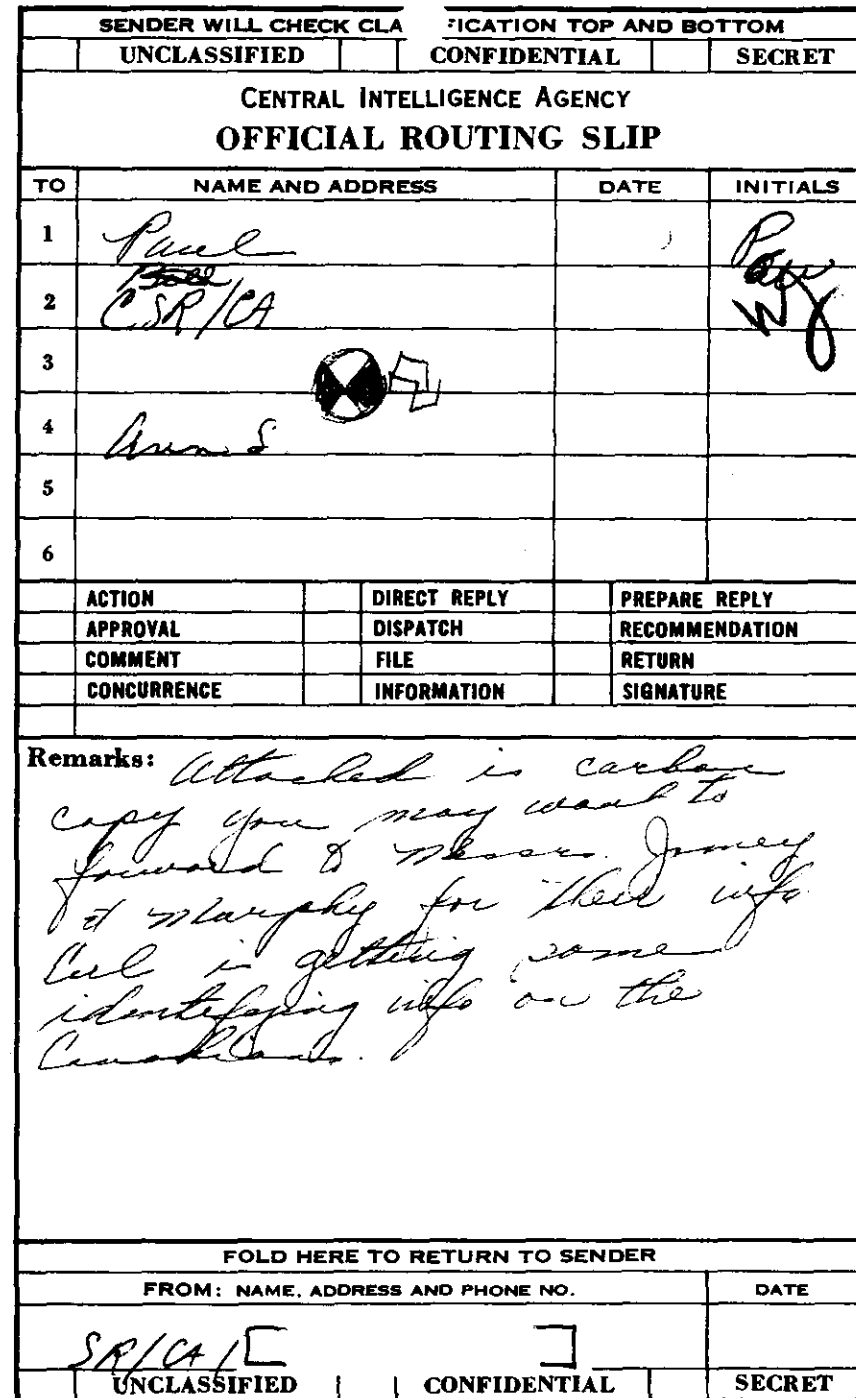 SENDER WILL CHECK CLA FICATION TOP AND BOTTOM
UNCLASSIFIED CONFIDENTIAL SECRET
CENTRAL INTELLIGENCE AGENCY
OFFICIAL ROUTING SLIP
TO NAME AND ADDRESS DATE INITIALS
1 Paul
2 CSR/CA
3
4 Ann S
5
6
ACTION DIRECT REPLY PREPARE REPLY
APPROVAL DISPATCH RECOMMENDATION
COMMENT FILE RETURN
CONCURRENCE INFORMATION SIGNATURE
Remarks: Attached is carbon
copy you may want to
forward to Messrs.
& Murphy for their info
is getting some
identifying info on the
Canadians.
FOLD HERE TO RETURN TO SENDER
FROM: NAME, ADDRESS AND PHONE NO. DATE
SR/CA/[ ]
UNCLASSIFIED CONFIDENTIAL SECRET